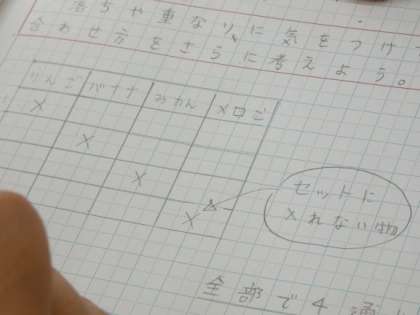 落ちや重なりに気をつけて
合わせ方をさらに考えよう。
りんご バナナ みかん メロン
×
×
×
×
セットに
入れない物
全部で4通り